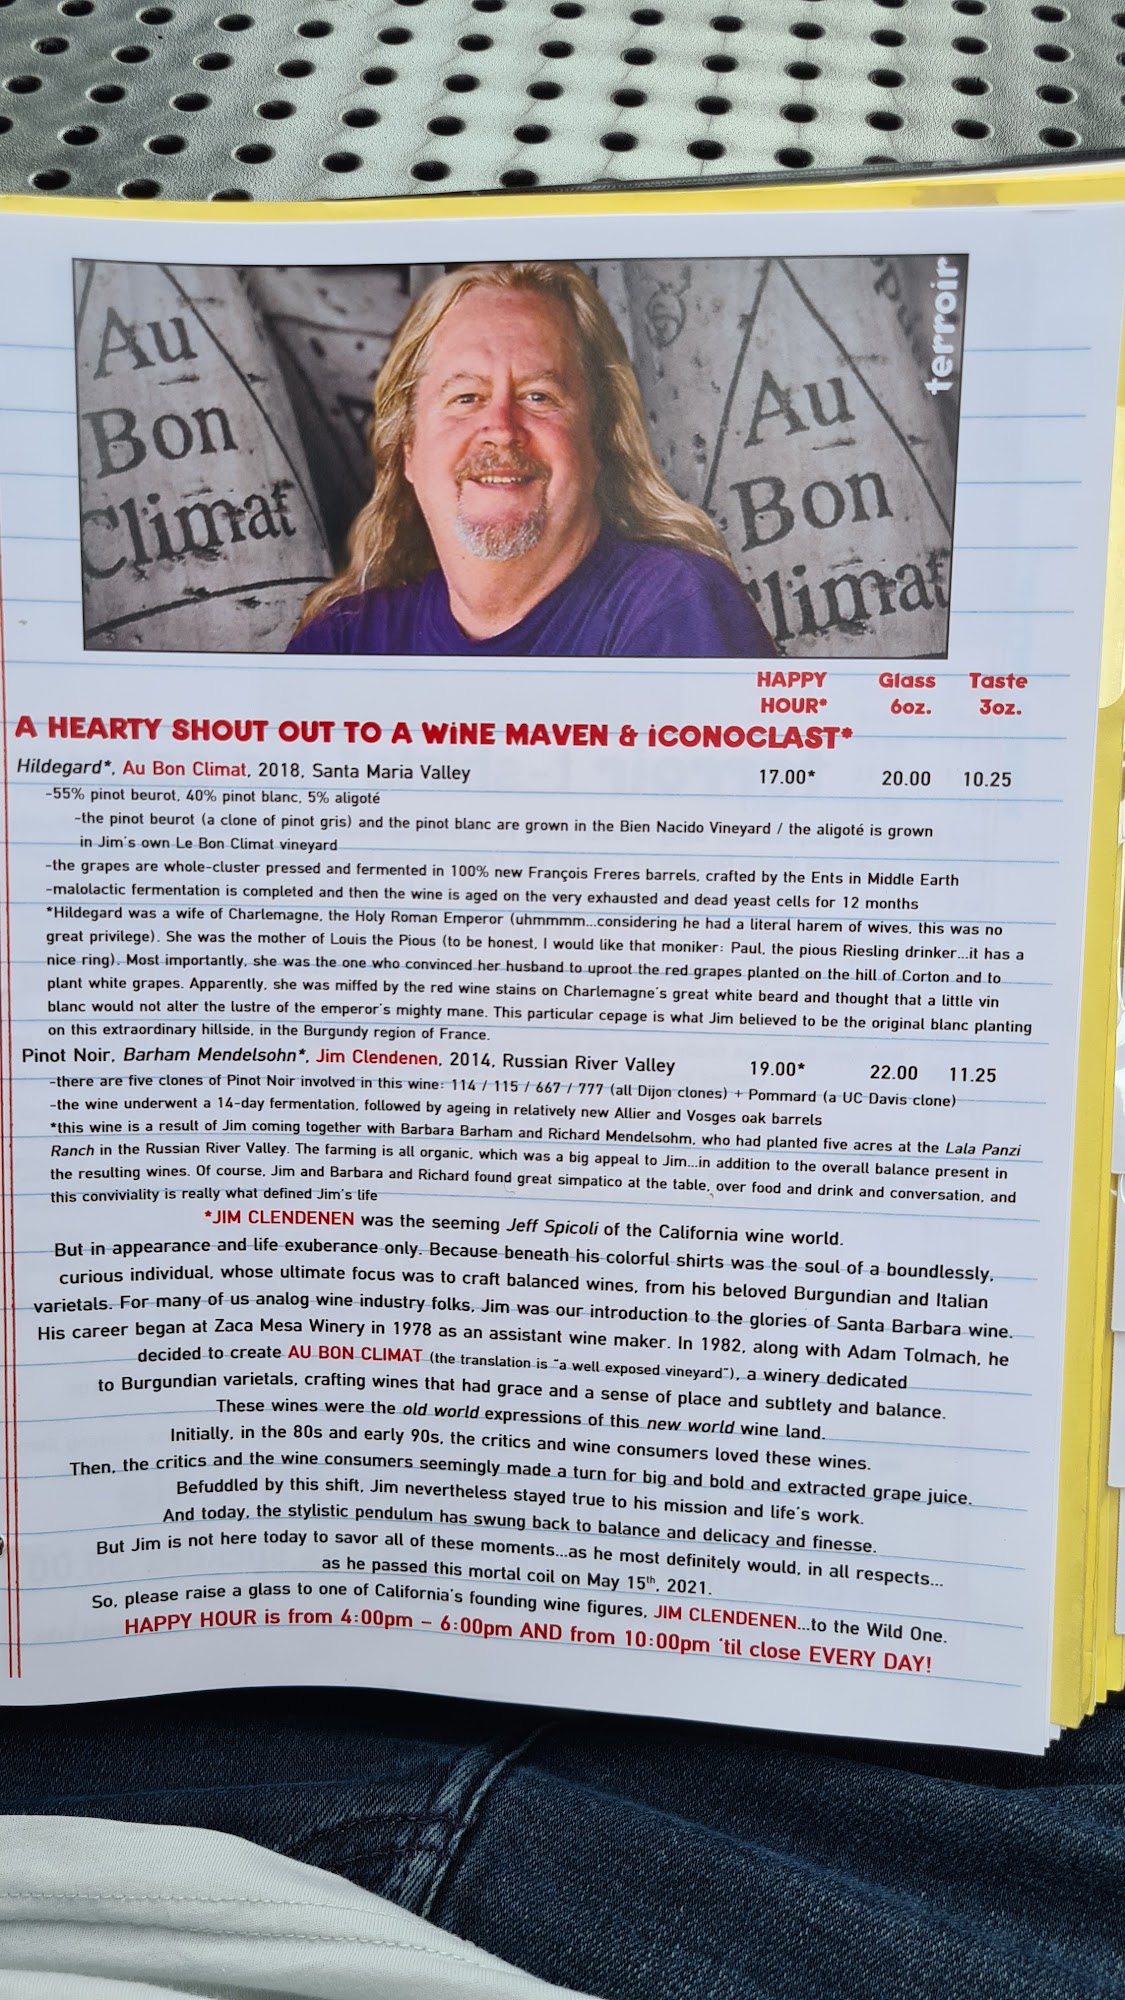 Au
Bon
Climat
Au
Bon
Climat
terroir
HAPPY Glass Taste
HOUR* 6oz. 3oz.
A HEARTY SHOUT OUT TO A WiNE MAVEN & iCONOCLAST*
Hildegard*, Au Bon Climat, 2018, Santa Maria Valley 17.00* 20.00 10.25
-55% pinot beurot, 40% pinot blanc, 5% aligoté
-the pinot beurot (a clone of pinot gris) and the pinot blanc are grown in the Bien Nacido Vineyard / the aligoté is grown
in Jim's own Le Bon Climat vineyard
-the grapes are whole-cluster pressed and fermented in 100% new François Freres barrels, crafted by the Ents in Middle Earth
-malolactic fermentation is completed and then the wine is aged on the very exhausted and dead yeast cells for 12 months
*Hildegard was a wife of Charlemagne, the Holy Roman Emperor (uhmmmm...considering he had a literal harem of wives, this was no
great privilege). She was the mother of Louis the Pious (to be honest, I would like that moniker: Paul, the pious Riesling drinker...it has a
nice ring). Most importantly, she was the one who convinced her husband to uproot the red grapes planted on the hill of Corton and to
plant white grapes. Apparently, she was miffed by the red wine stains on Charlemagne's great white beard and thought that a little vin
blanc would not alter the lustre of the emperor's mighty mane. This particular cepage is what Jim believed to be the original blanc planting
on this extraordinary hillside, in the Burgundy region of France.
Pinot Noir, Barham Mendelsohn*, Jim Clendenen, 2014, Russian River Valley 19.00* 22.00 11.25
-there are five clones of Pinot Noir involved in this wine: 114 / 115 / 667 / 777 (all Dijon clones) + Pommard (a UC Davis clone)
-the wine underwent a 14-day fermentation, followed by ageing in relatively new Allier and Vosges oak barrels
*this wine is a result of Jim coming together with Barbara Barham and Richard Mendelsohm, who had planted five acres at the Lala Panzi
Ranch in the Russian River Valley. The farming is all organic, which was a big appeal to Jim...in addition to the overall balance present in
the resulting wines. Of course, Jim and Barbara and Richard found great simpatico at the table, over food and drink and conversation, and
this conviviality is really what defined Jim's life
*JIM CLENDENEN was the seeming Jeff Spicoli of the California wine world.
But in appearance and life exuberance only. Because beneath his colorful shirts was the soul of a boundlessly,
curious individual, whose ultimate focus was to craft balanced wines, from his beloved Burgundian and Italian
varietals. For many of us analog wine industry folks, Jim was our introduction to the glories of Santa Barbara wine.
His career began at Zaca Mesa Winery in 1978 as an assistant wine maker. In 1982, along with Adam Tolmach, he
decided to create AU BON CLIMAT (the translation is "a well exposed vineyard"), a winery dedicated
to Burgundian varietals, crafting wines that had grace and a sense of place and subtlety and balance.
These wines were the old world expressions of this new world wine land.
Initially, in the 80s and early 90s, the critics and wine consumers loved these wines.
Then, the critics and the wine consumers seemingly made a turn for big and bold and extracted grape juice.
Befuddled by this shift, Jim nevertheless stayed true to his mission and life's work.
And today, the stylistic pendulum has swung back to balance and delicacy and finesse.
But Jim is not here today to savor all of these moments...as he most definitely would, in all respects...
as he passed this mortal coil on May 15th, 2021.
So, please raise a glass to one of California's founding wine figures, JIM CLENDENEN...to the Wild One.
HAPPY HOUR is from 4:00pm – 6:00pm AND from 10:00pm 'til close EVERY DAY!